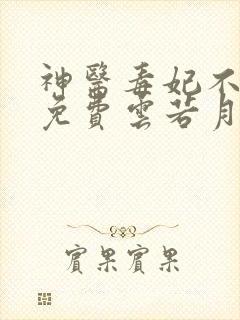 神醫毒妃不
免費雲若月
賓果賓果